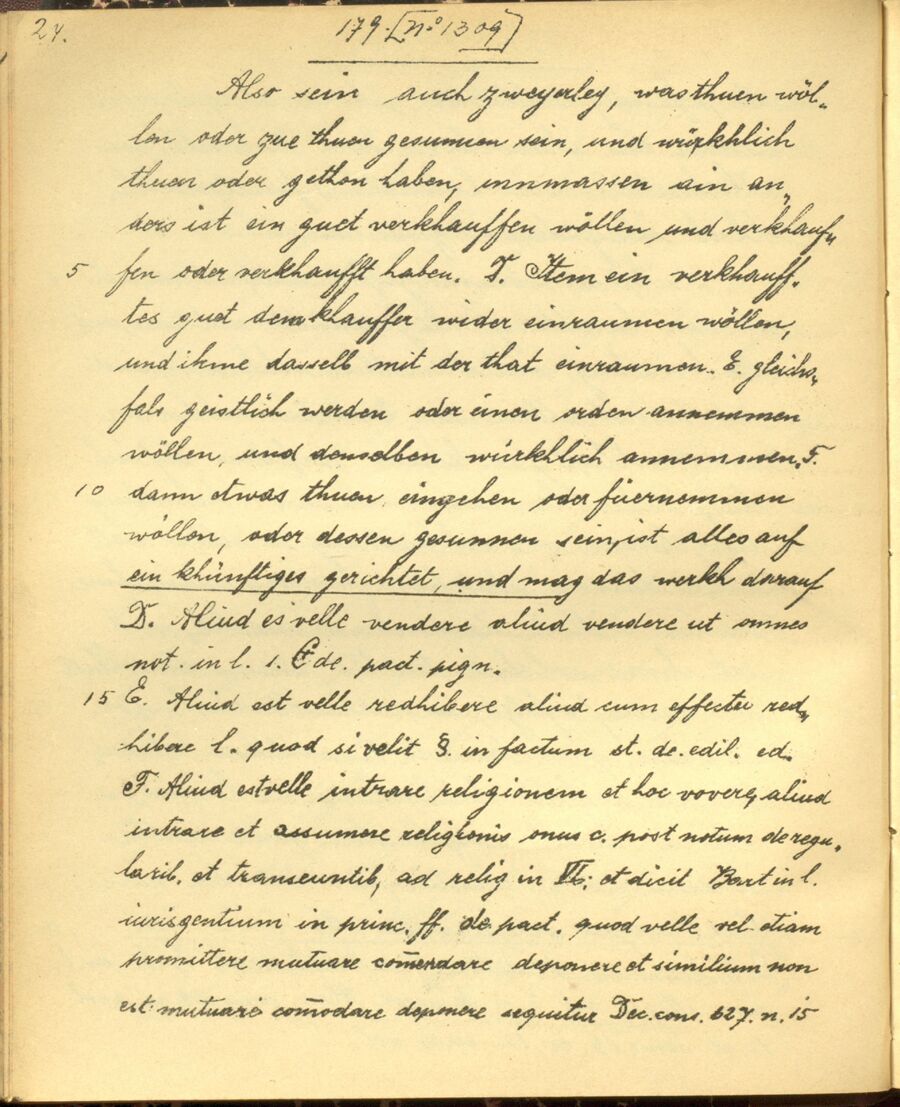 24.
179. [nº 1309]
Also sein auch zweyerley, was thuen wöl„
len oder zue thuen gesunnen sein, und würkhlich
thuen oder gethon haben, innmassen ain an„
ders ist ein guet verkhauffen wöllen und verkhauf„
5 fen oder verkhaufft haben. D. Item ein verkhauff„
tes guet dem khauffer wider einraumen wöllen,
und ihme dasselb mit der that einraumen. E. gleichs„
fals geistlich werden oder einen orden annemmen
wöllen, und denselben würkhlich annemmen. F.
10 dann etwas thuen, eingehen oder füernemmen
wöllen, oder dessen gesunnen sein, ist alles auf
ein khünftiges gerichtet, und mag das werkh darauf
D. Aliud es velle vendere aliud vendere ut omnes
not. in l. 1. C de. pact. pign.
15 E. Aliud est velle redhibere aliud cum effectu red„
hibere l. quod si velit §. in factum st. de. edil. ed.
F. Aliud est velle intrare religionem et hoc vovere, aliud
intrare et assumere religionis onus c. post notum de regu„
larib. et transeuntib, ad relig in VI; et dicit Bart in l.
iurisgentium in princ. ff. de pact. quod velle vel etiam
promittere mutuare com̄endare deponere et similium non
est mutuare com̄odare deponere sequitur Dec. cons. 627. n. 15